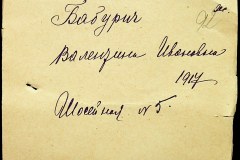 Бабурич
Валентина Ивановна
1917
Шосейная № 5.